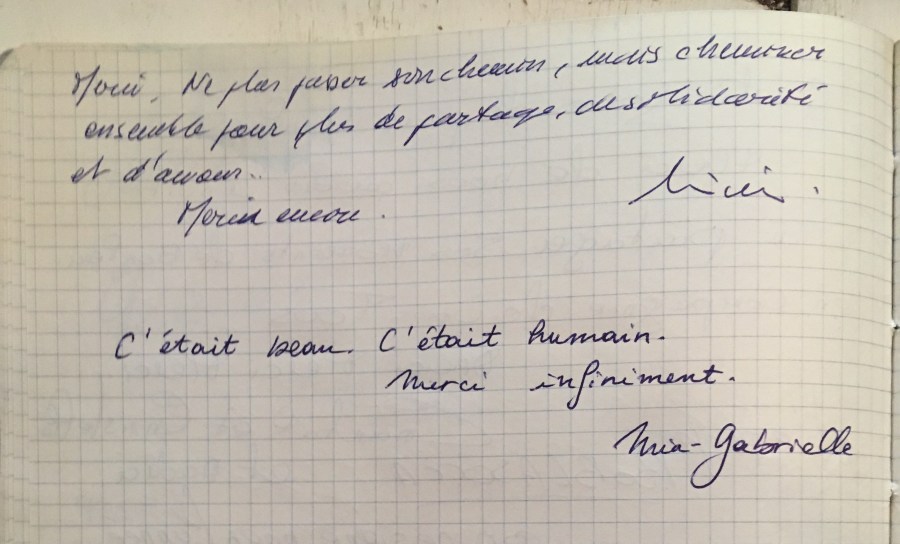 Merci. Ne plus passer son chemin, mais cheminer
ensemble pour plus de partage, de solidarité
et d'amour..
Merci encore.
C'était beau. C'était humain.
Merci infiniment.
Mia-Gabrielle